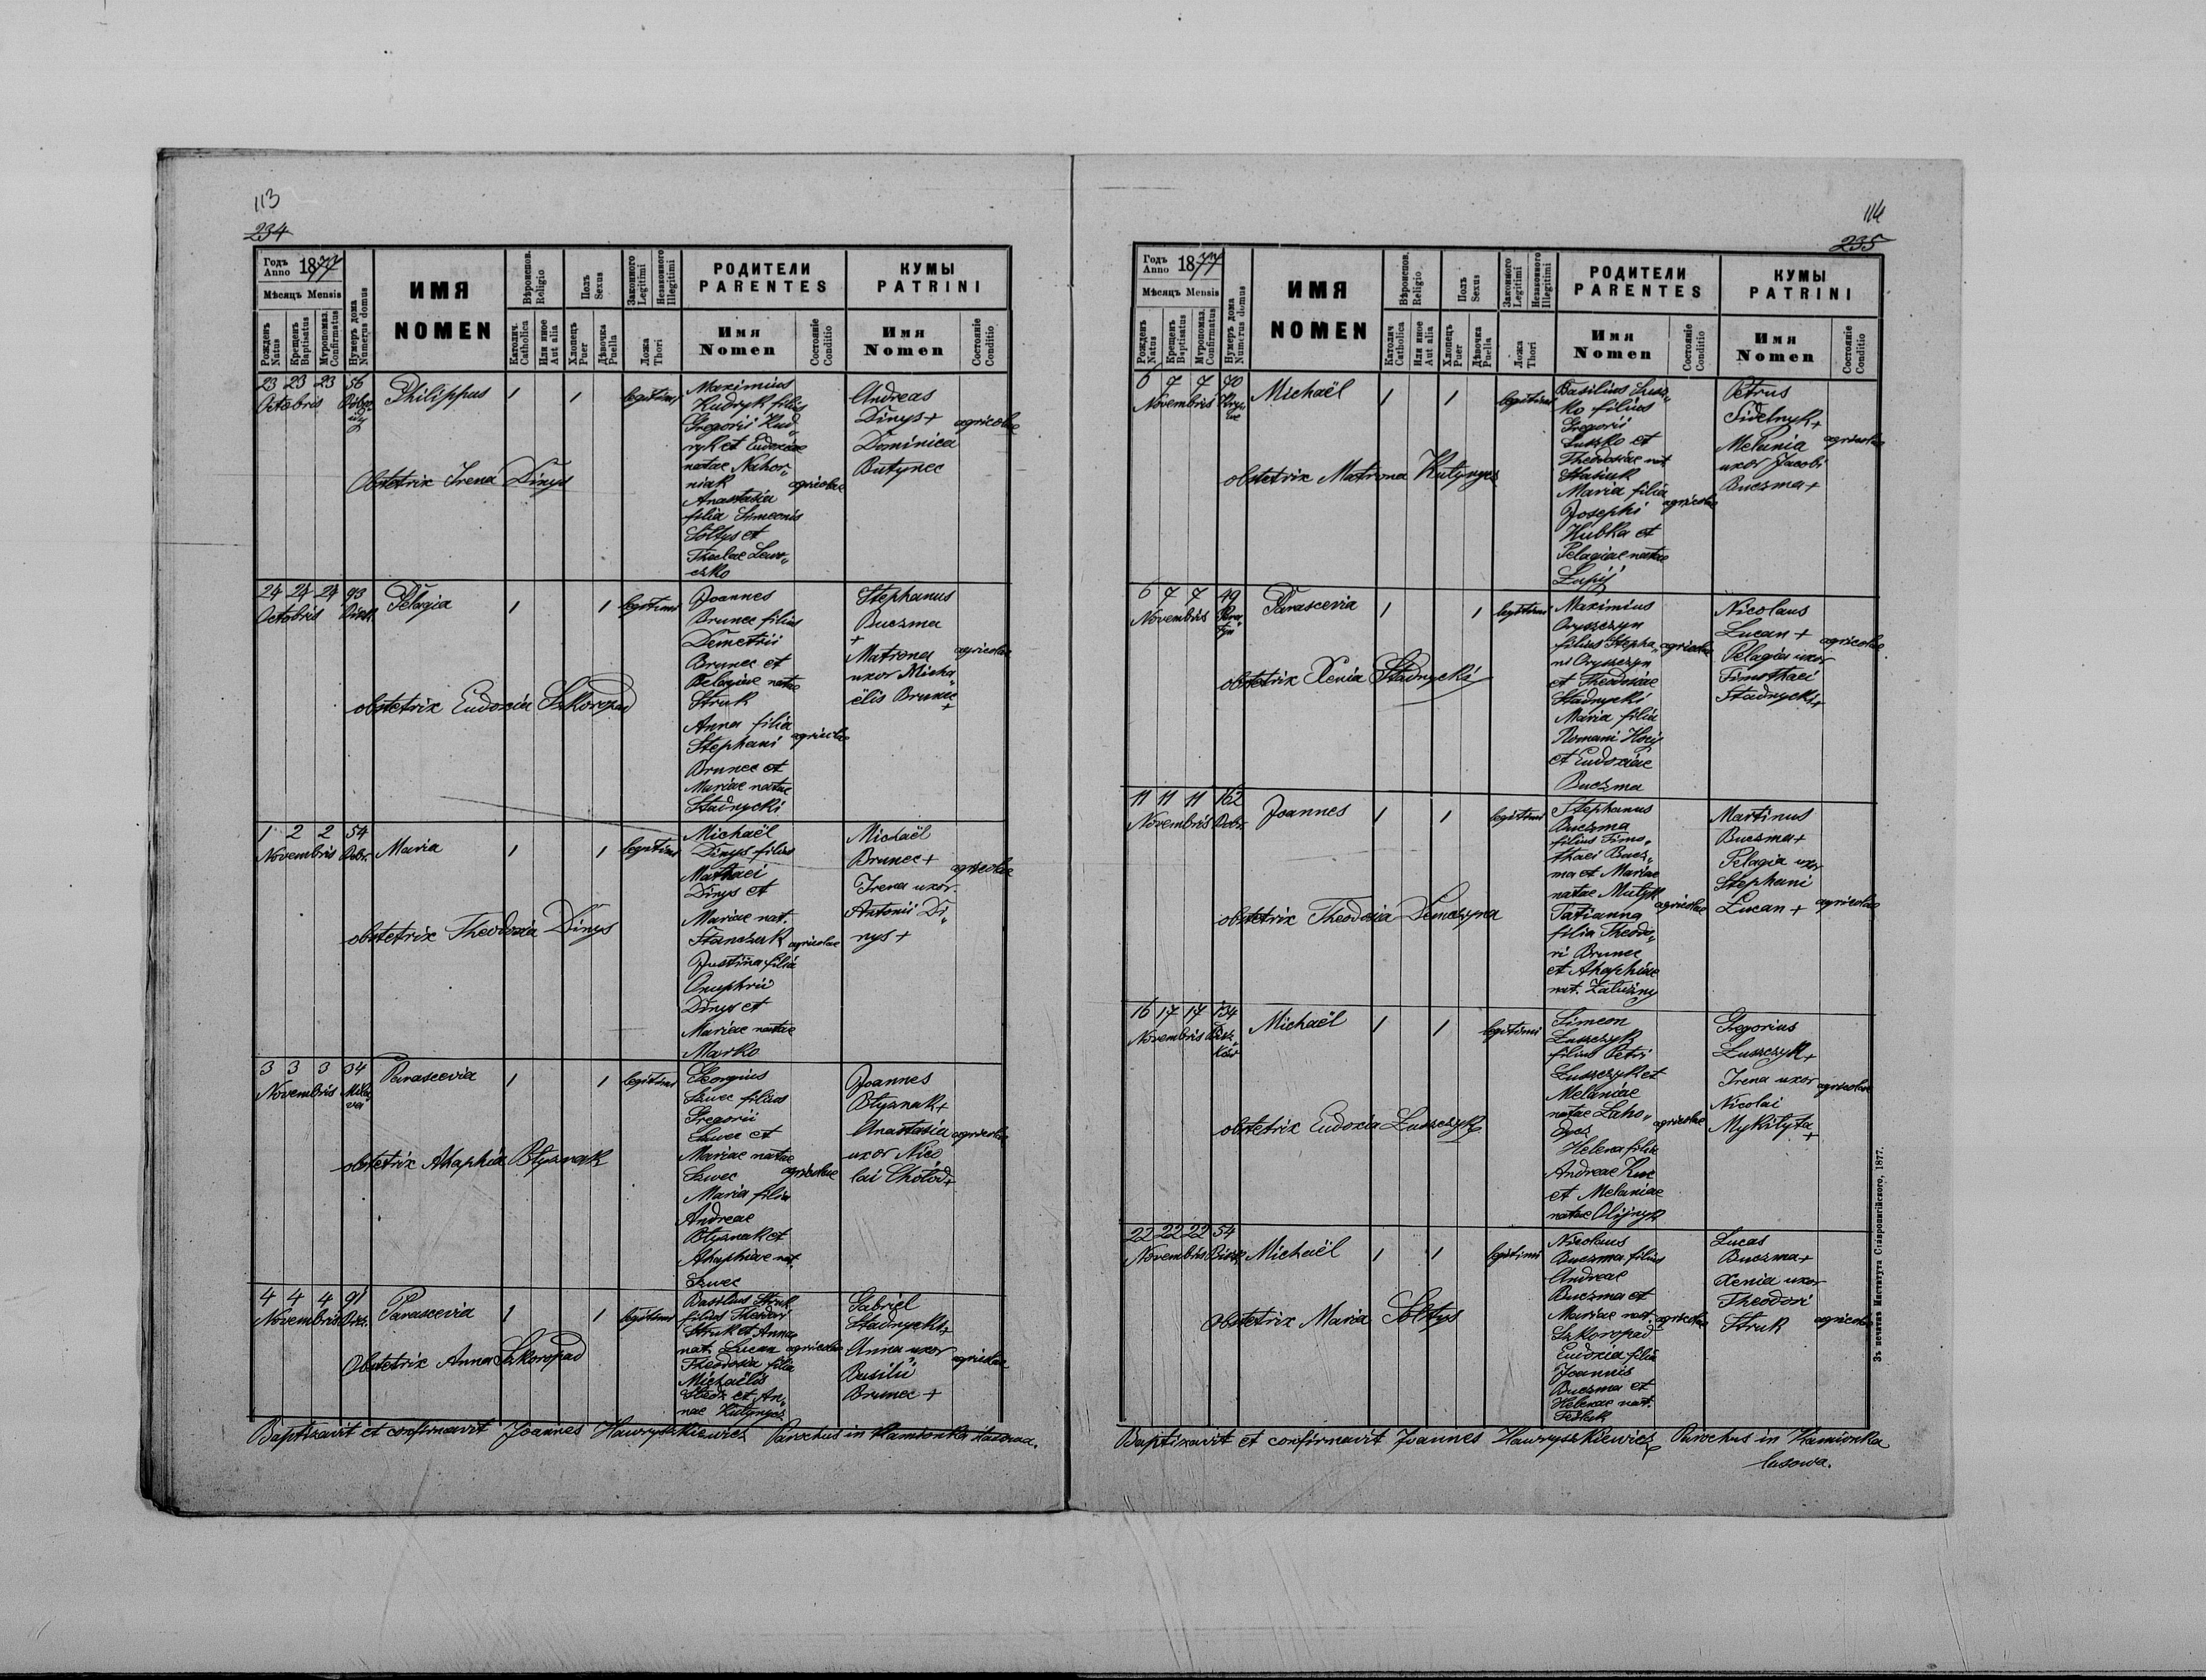 113
234
Годъ Anno 1877
Мѣсяцъ Mensis
Рожденъ Natus
Крещенъ Baptisatus
Мѵропомаз. Confirmatus
Нумеръ дома Numerus domus
ИМЯ
NOMEN
Вѣроисповѣд. Religio
Католич. Catholica
Или иное Aut alia
Полъ Sexus
Хлопецъ Puer
Дѣвочка Puella
Законного Legitimi
Незаконного Illegitimi
Ложа Thori
РОДИТЕЛИ
PARENTES
Имя
Nomen
Состояніе Conditio
КУМЫ
PATRINI
Имя
Nomen
Состояніе Conditio
23 23 23 56
Octobris
Philippus
1 1
legitimi
Maximius
Kudryk filius
Gregorii Kud„
ryk et Eudoxiae
natae Nahor„
niak agricolae
Anastasia
filia Simeonis
Soltys et
Theclae Lew„
czko
Andreas
Dinys +
Dominica
Butynec
agricolae
Obstetrix Irena Dinys
24 24 24 93
Octobris
Pelagia
1 1
legitimi
Joannes
Brunec filius
Demetrii
Brunec et
Pelagiae natae
Struk
Anna filia
Stephani agricolae
Brunec et
Mariae natae
Stadnycki
Stephanus
Buczma
+
Matrona agricolae
uxor Micha„
ëlis Brunec
+
obstetrix Eudoxia Szkoropad
1 2 2 54
Novembris Dobr.
Maria
1 1
legitimi
Michaël
Dinys filius
Mathaei
Dinys et
Mariae nat.
Stanczak agricolae
Justina filia
Onuphrii
Dinys et
Mariae natae
Marko
Michaël
Brunec +
agricolae
Irena uxor
Antonii Di„
nys +
obstetrix Theodozia Dinys
3 3 3 34
Novembris
Parascevia
1 1
legitimi
Georgius
Szwec filius
Gregorii
Szwec et
Mariae natae
Szwec agricolae
Maria filia
Andreae
Blyznak et
Ahaphiae nat.
Szwec
Joannes
Blyznak +
Anastasia agricolae
uxor Nico
lai Cholod +
obstetrix Ahaphia Blyznak
4 4 4 91
Novembris
Parascevia
1 1
legitimi
Basilius Struk
filius Theodori
Struk et Annae
nat. Lucan agricolae
Theodosia filia
Michaëlis
Stecz et An„
nae Kutynycz
Gabriel
Stadnycki +
Anna uxor
agricolae
Basilii
Brunec +
Obstetrix Anna Szkoropad
Baptizavit et confirmavit Joannes Hawryszkiewicz Parochus in Kamionka lasowa.
114
235
Годъ Anno 1877
Мѣсяцъ Mensis
Рожденъ Natus
Крещенъ Baptisatus
Мѵропомаз. Confirmatus
Нумеръ дома Numerus domus
ИМЯ
NOMEN
Вѣроисповѣд. Religio
Католич Catholica
Или иное Aut alia
Полъ Sexus
Хлопецъ Puer
Дѣвочка Puella
Законного Legitimi
Незаконного Illegitimi
Ложа Thori
РОДИТЕЛИ
PARENTES
Имя
Nomen
Состояніе Conditio
КУМЫ
PATRINI
Имя
Nomen
Состояніе Conditio
6 7 7 70
Novembris
Michaël
1 1
legitimi
Basilius Lusz„
ko filius
Gregorii
Luszko et
Theodosiae nat
Stasiuk
Maria filia
Josephi agricolae
Hubka et
Pelagiae natae
Łapij
Petrus
Sidelnyk +
Melania agricolae
uxor Jacobi
Buczma +
obstetrix Matrona Kutynycz
6 7 7 49
Novembris
Parascevia
1 1
legitimi
Maximius
Oryszczyn
filius Stepha„ agricolae
ni Oryszczyn
et Theodosiae
Stadnycki
Maria filia
Romani Hoij
et Eudoxiae
Buczma
Nicolaus
Lucan + agricolae
Pelagia uxor
Timothaei
Stadnycki +
obstetrix Xenia Stadnycki
11 11 11 162
Novembris Dobr.
Joannes
1 1
legitimi
Stephanus
Buczma
filius Timo„
thaei Bucz„
ma et Mariae
natae Mutyk agricolae
Tatianna
filia Theodo„
ri Brunec
et Ahaphiae
nat. Zaluzny
Martinus
Buczma +
Pelagia uxor
Stephani
Lucan + agricolae
obstetrix Theodozia Demczyna
16 17 17 134
Novembris
Michaël
1 1
legitimi
Simeon
Łuszczyk
filius Petri
Łuszczyk et
Melaniae
natae Laho„ agricolae
dycz
Helena filia
Andreae Kuc
et Melaniae
natae Olijnyk
Gregorius
Łuszczyk +
Irena uxor agricolae
Nicolai
Mykityta
+
obstetrix Eudoxia Łuszczyk
22 22 22 54
Novembris
Michaël
1 1
legitimi
Nicolaus
Buczma filius
Andreae
Buczma et
Mariae nat. agricolae
Szkoropad
Eudoxia filia
Joannis
Buczma et
Helenae nat.
Fedak
Lucas
Buczma +
Xenia uxor
Theodori
Struk agricolae
Obstetrix Maria Soltys
Зъ печатнѣ Института Ставропигійского, 1877.
Baptizavit et confirmavit Joannes Hawryszkiewicz Parochus in Kamionka
lasowa.